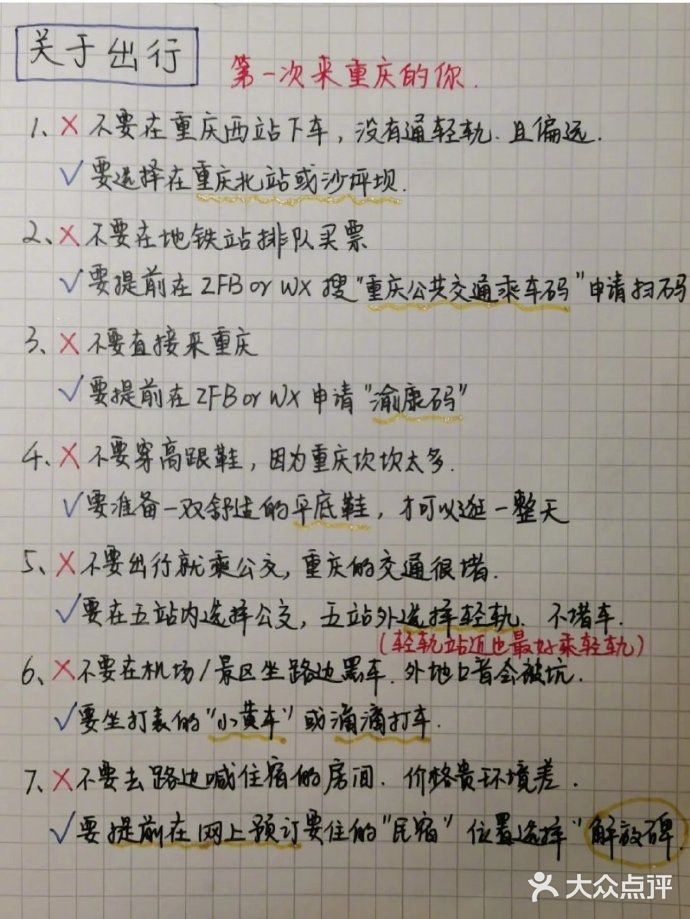 关于出行
第一次来重庆的你.
1、× 不要在重庆西站下车，没有通轻轨.且偏远.
√要选择在重庆北站或沙坪坝.
2、× 不要在地铁站排队买票
√要提前在 ZFB or WX 搜"重庆公共交通乘车码"申请扫码
3、× 不要直接来重庆
√要提前在 ZFB or WX 申请"渝康码"
4、× 不要穿高跟鞋，因为重庆坎坎太多.
√要准备一双舒适的平底鞋，才可以逛一整天
5、× 不要出行就乘公交，重庆的交通很堵.
√要在五站内选择公交，五站外选择轻轨.不堵车.
(轻轨站近也最好乘轻轨)
6、× 不要在机场/景区坐路边黑车.外地口音会被坑.
√要坐打表的"小黄车"或滴滴打车.
7、× 不要去路边喊住宿的房间.价格贵环境差.
√要提前在网上预订要住的"民宿"位置选择"解放碑"
大众点评